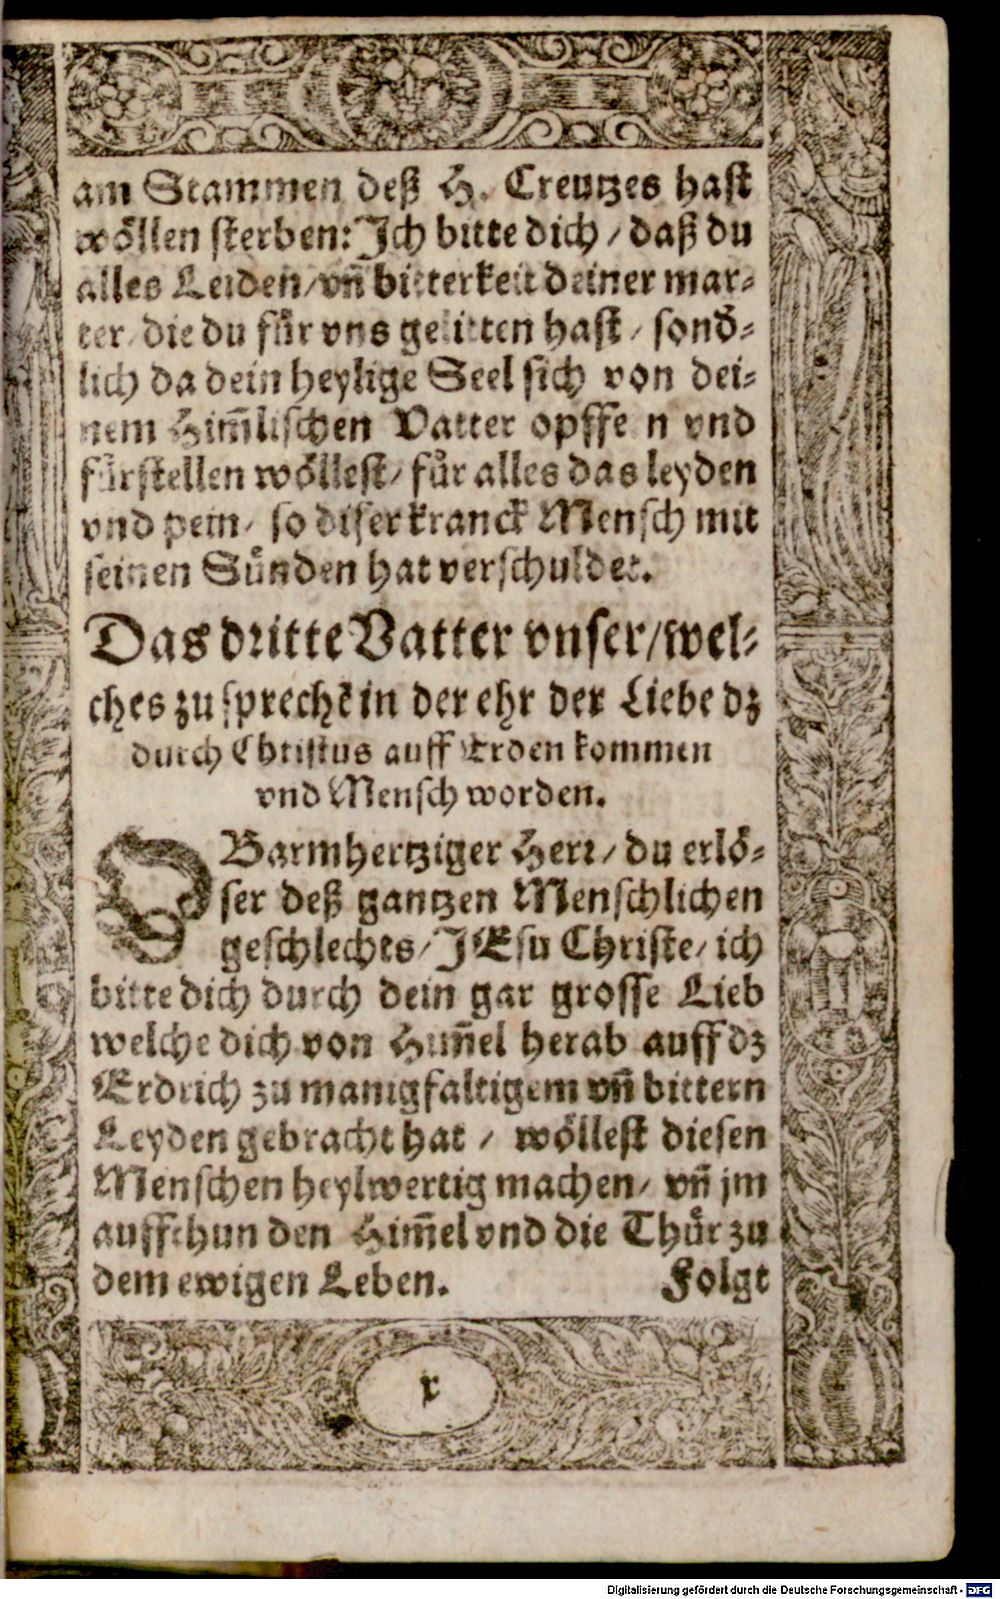 am Stammen deß H. Creutzes hast
wöllen sterben: Jch bitte dich / daß du
alles Leiden / vñ bitterkeit deiner mar-
ter / die du für vns gelitten hast / sonð-
lich da dein heylige Seel sich von dei-
nem Him̃lischen Vatter opffe n vnd
fürstellen wöllest / für alles das leyden
vnd pein / so diser kranck Mensch mit
seinen Sünden hat verschuldet.
Das dritte Vatter vnser / wel-
ches zu sprechẽ in der ehr der Liebe dz
durch Christus auff Erden kommen
vnd Mensch worden.
O Barmhertziger Herr / du erlö-
ser deß gantzen Menschlichen
geschlechts / JEsu Christe / ich
bitte dich durch dein gar grosse Lieb
welche dich von Him̃el herab auff dz
Erdrich zu manigfaltigem vñ bittern
Leyden gebracht hat / wöllest diesen
Menschen heylwertig machen / vñ jm
auffthun den Him̃el vnd die Thür zu
dem ewigen Leben. Folgt
r
Digitalisierung gefördert durch die Deutsche Forschungsgemeinschaft - DFG